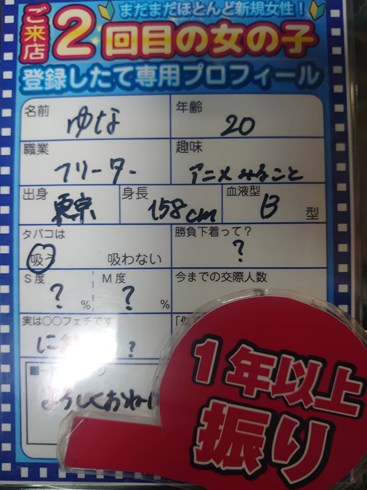 まだまだほとんど新規女性！
ご来店2回目の女の子
登録したて専用プロフィール
名前 ゆな
年齢 20
職業 フリーター
趣味 アニメみること
出身 東京
身長 158cm
血液型 B 型
タバコは 吸う 吸わない
勝負下着って？ ?
S度 ? %
M度 ? %
今までの交際人数
実は○○フェチです
に
?
よろしくおねが
1年以上
振り